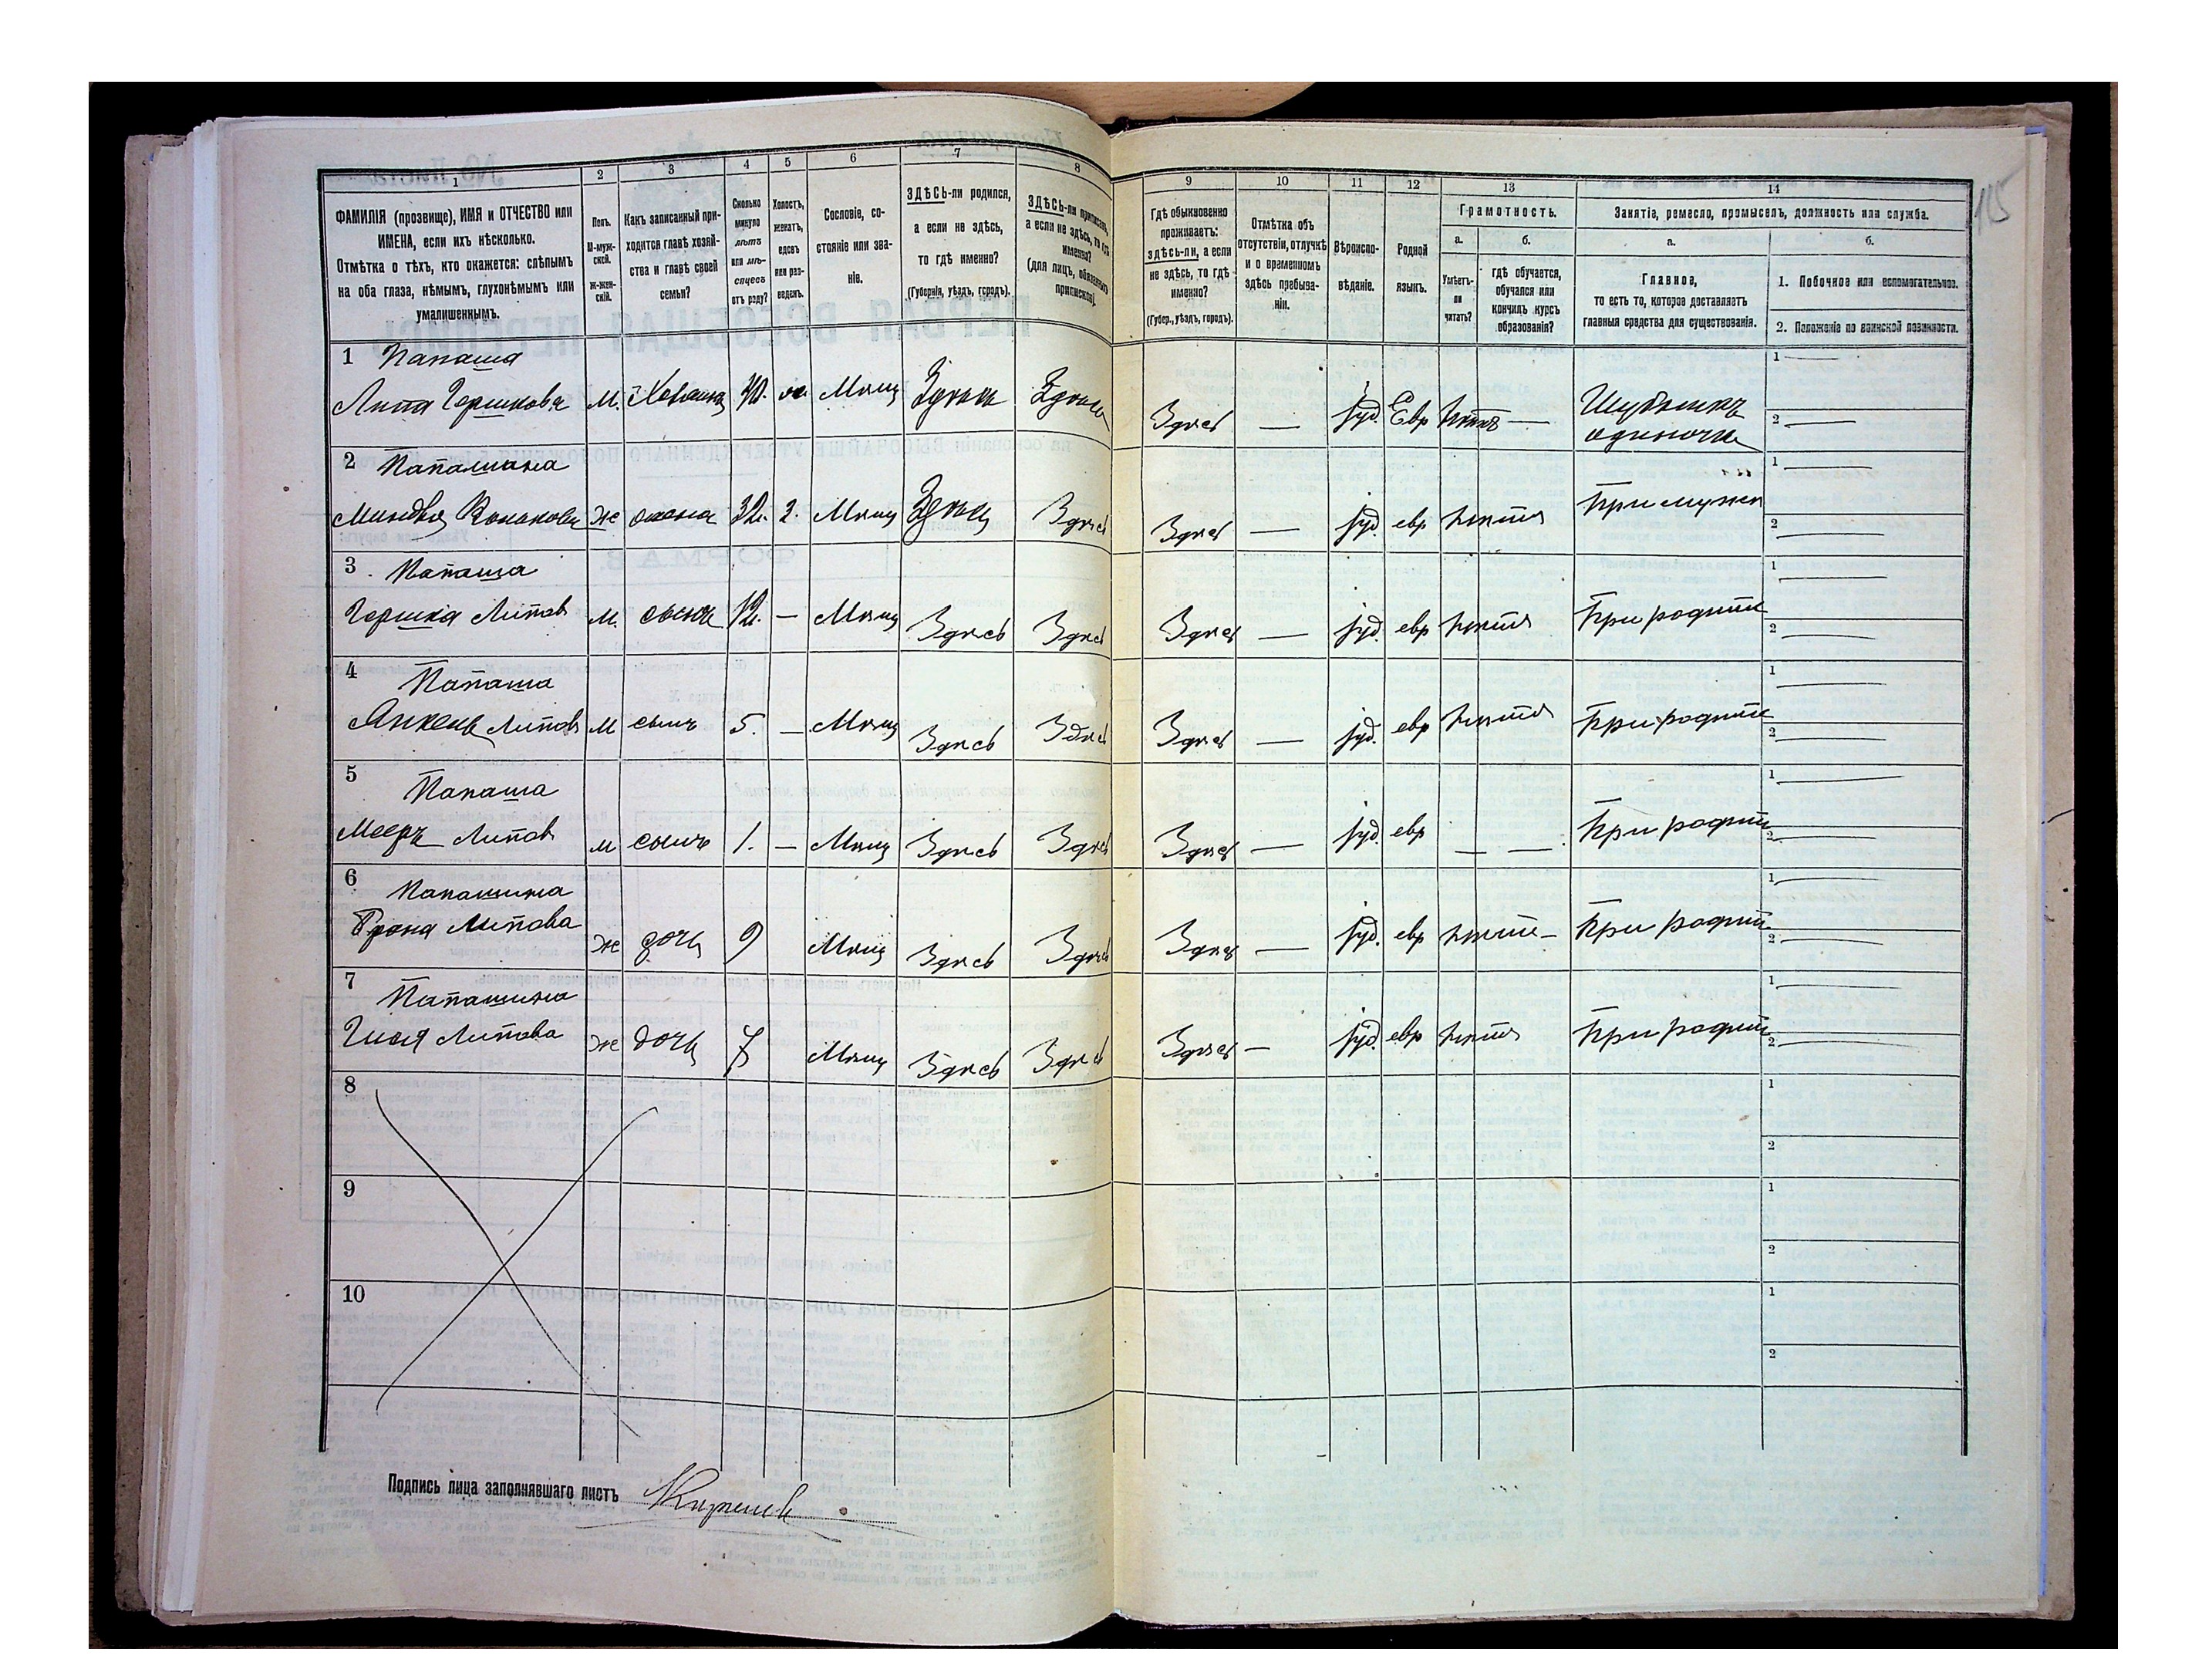 115
1
2
3
4
5
6
7
8
9
10
11
12
13
14
ФАМИЛІЯ (прозвище), ИМЯ и ОТЧЕСТВО или
ИМЕНА, если ихъ нѣсколько.
Отмѣтка о тѣхъ, кто окажется: слѣпымъ
на оба глаза, нѣмымъ, глухонѣмымъ или
умалишеннымъ.
Полъ.
М-муж-
ской.
Ж-жен-
скій.
Какъ записанный при-
ходится главѣ хозяй-
ства и главѣ своей
семьи?
Сколько
минуло
лѣтъ
или мѣ-
сяцевъ
отъ роду?
Холостъ,
женатъ,
вдовъ
или раз-
веденъ.
Сословіе, со-
стояніе или зва-
ніе.
ЗДѢСЬ-ли родился,
а если не здѣсь,
то гдѣ именно?
(Губернія, уѣздъ, городъ).
ЗДѢСЬ-ли приписанъ,
а если не здѣсь, то гдѣ
именно?
(для лицъ, обязанныхъ
припиской).
Гдѣ обыкновенно
проживаетъ:
здѣсь-ли, а если
не здѣсь, то гдѣ
именно?
(Губер., уѣздъ, городъ).
Отмѣтка объ
отсутствіи, отлучкѣ
и о временномъ
здѣсь пребыва-
ніи.
Вѣроиспо-
вѣданіе.
Родной
языкъ.
Грамотность.
а.
Умѣетъ-
ли
читать?
б.
гдѣ обучается,
обучался или
кончилъ курсъ
образованія?
Занятіе, ремесло, промыселъ, должность или служба.
а.
Главное,
то есть то, которое доставляетъ
главныя средства для существованія.
б.
1. Побочное или вспомогательное.
2. Положеніе по воинской повинности.
1 Папаша
Липа Гершковъ М. Хозяинъ 40. Мѣщ Здѣсь Здѣсь Здѣсь — Іуд. Евр нѣтъ — одиночка
1 —
2 —
2 Папашина
Ж жена 32. Мѣщ Здѣсь Здѣсь Здѣсь — Іуд. евр нѣтъ При мужѣ
1 —
2 —
3 Папаша
Гершка Липов М. сынъ 12. — Мѣщ Здѣсь Здѣсь Здѣсь — Іуд. евр нѣтъ При родит
1 —
2 —
4 Папаша
Янкель Липов М сынъ 5. — Мѣщ Здѣсь Здѣсь Здѣсь — Іуд. евр нѣтъ При родит
1 —
2 —
5 Папаша
Мееръ Липов М сынъ 1. — Мѣщ Здѣсь Здѣсь Здѣсь — Іуд. евр — — При родит
1 —
2 —
6 Папашина
Липова Ж дочь 9 Мѣщ Здѣсь Здѣсь Здѣсь — Іуд. евр нѣтъ — При родит
1 —
2 —
7 Папашина
Липова Ж дочь 7 Мѣщ Здѣсь Здѣсь Здѣсь — Іуд. евр нѣтъ При родит
1 —
2 —
8
1
2
9
1
2
10
1
2
Подпись лица заполнявшаго листъ